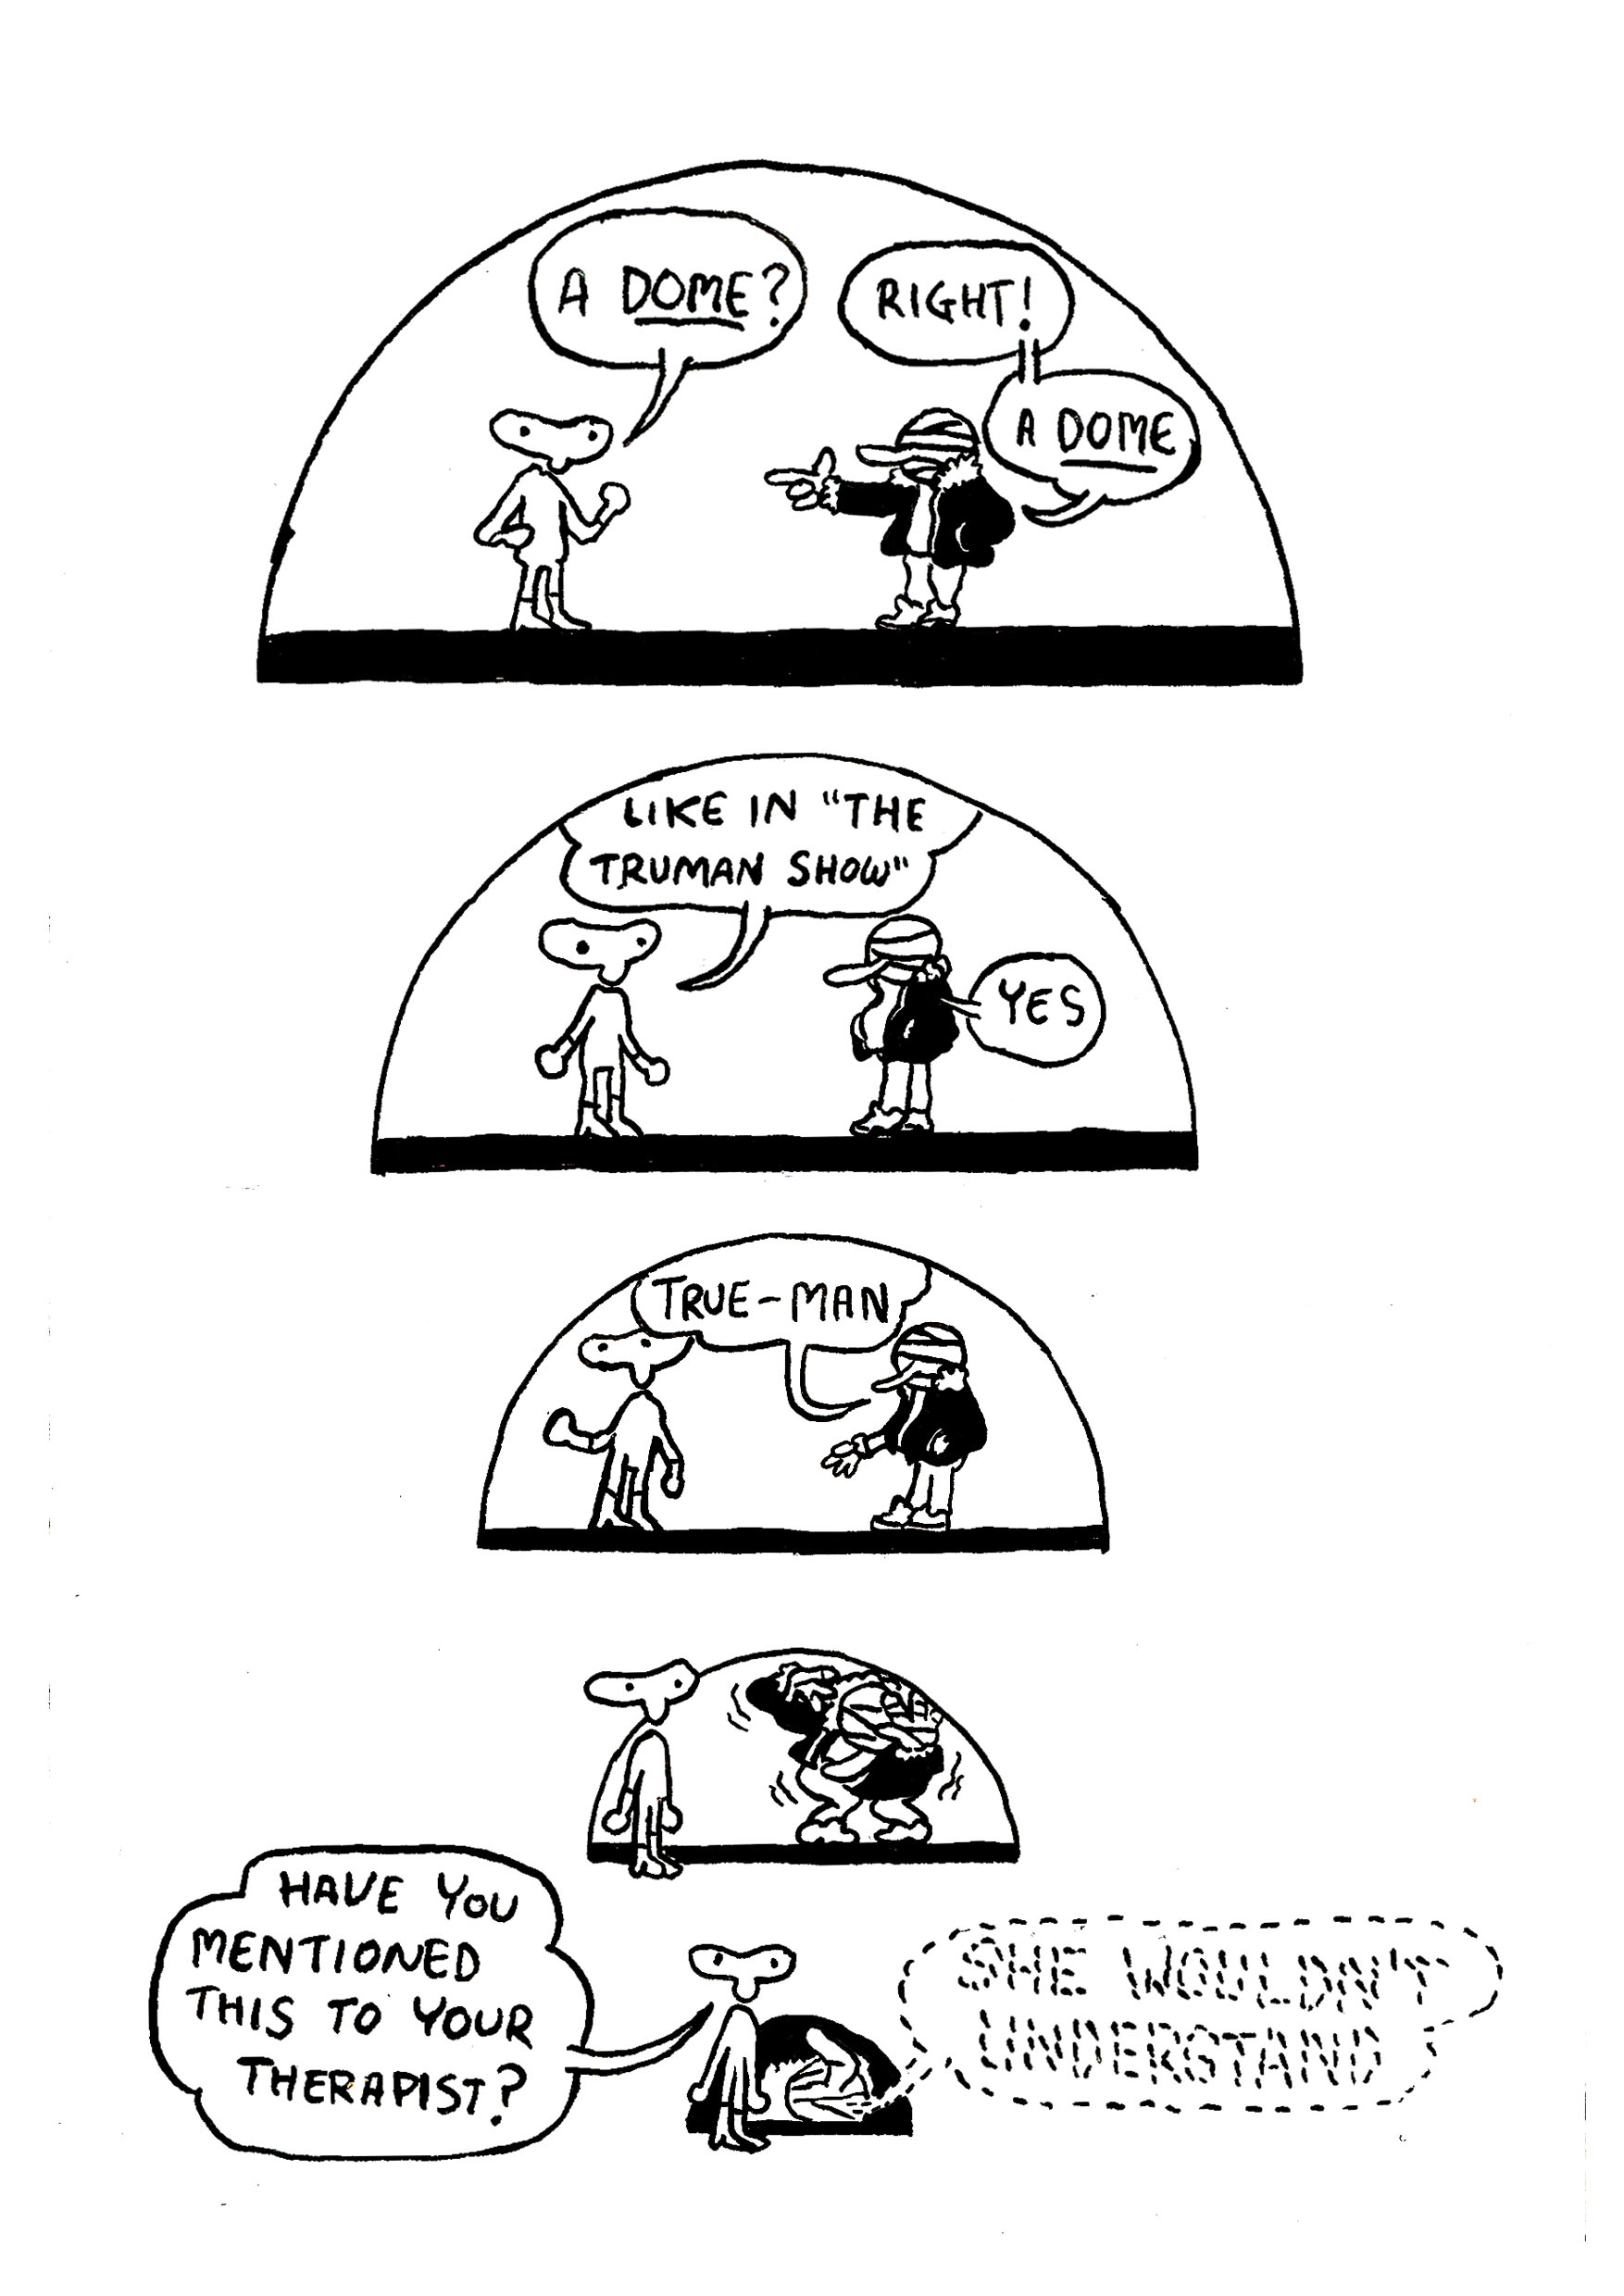 A DOME?
RIGHT!
A DOME
LIKE IN "THE
TRUMAN SHOW"
YES
TRUE-MAN
HAVE YOU
MENTIONED
THIS TO YOUR
THERAPIST?
SHE WOULDN'T
UNDERSTAND